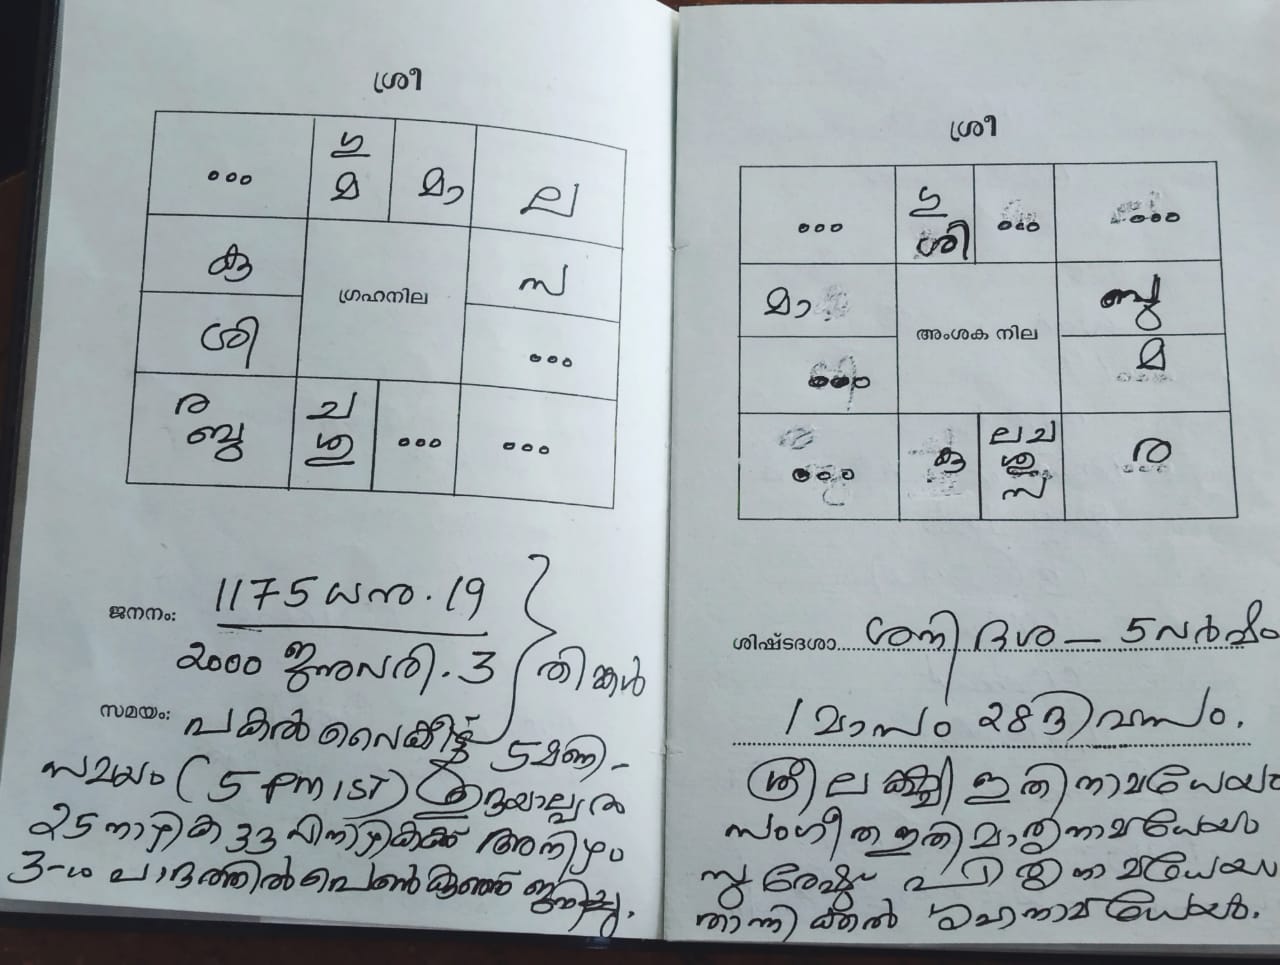 ശ്രീ
... ഗു മ മാ ല
കു സ
ഗ്രഹനില
ശി ...
ര ബു ച ശു ... ...
ജനനം: 1175 ധനു. 19
2000 ജനുവരി. 3 തിങ്കൾ
സമയം: പകൽ വൈകീട്ട് 5 മണി-
സമയം (5 PM IST) ഉദയാല്പരം
25 നാഴിക 33 വിനാഴികക്ക് അനിഴം
3-ാം പാദത്തിൽ പെൺകുഞ്ഞ് ജനിച്ചു.
ശ്രീ
... ഗു ശി ... ...
മാ ബു
അംശക നില
... മ
... കു ല ച ശു സ ര
ശിഷ്ടദശാ... ശനി ദശ - 5 വർഷം
1 മാസം 28 ദിവസം.
ശ്രീലക്ഷ്മി ഇതി നാമധേയം
സംഗീത ഇതി മാതൃനാമധേയം
സുരേഷ് പിതൃനാമധേയം
താന്നിക്കൽ ഗൃഹനാമധേയം.